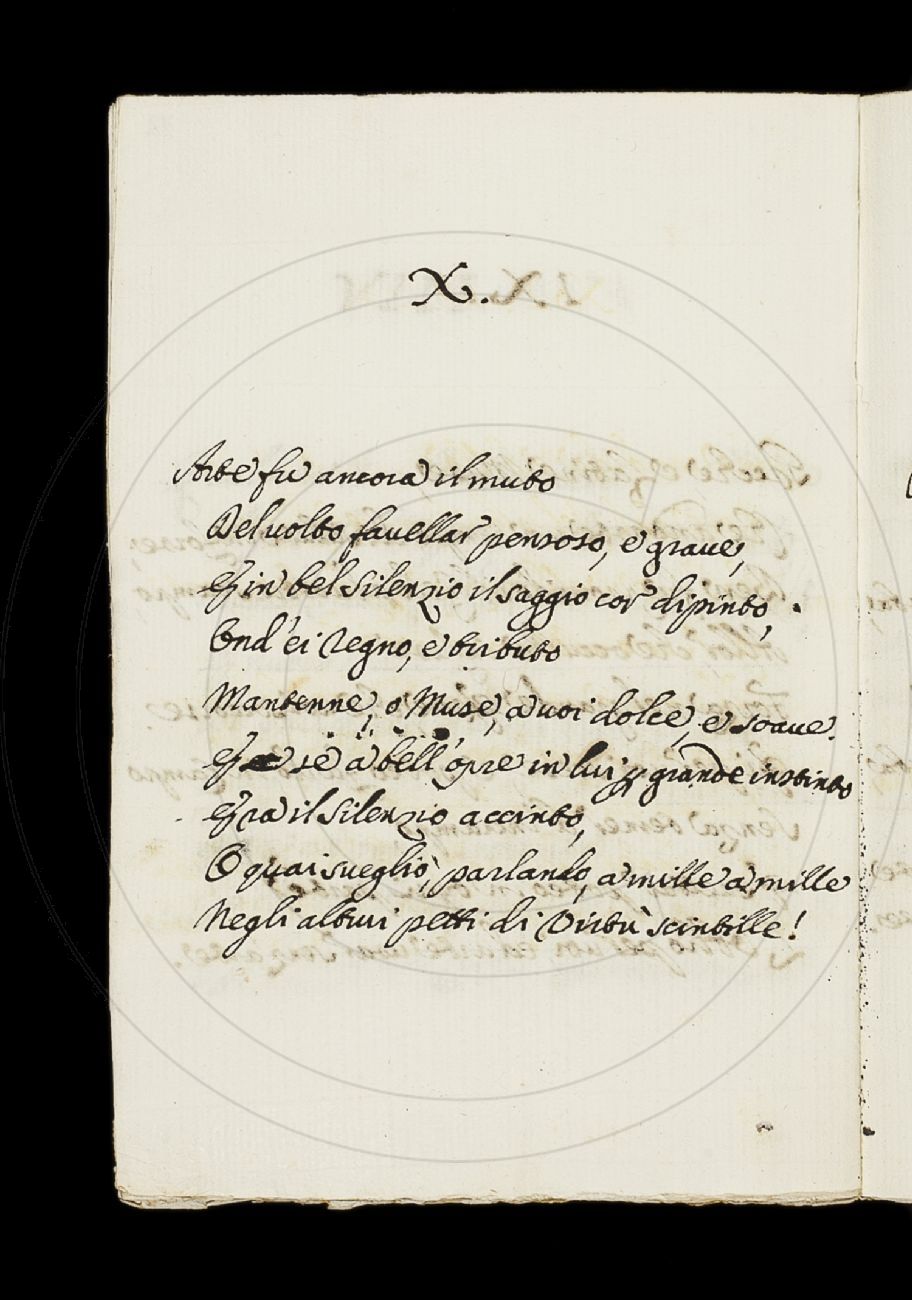 X.
Arte fu ancora il muto
Del volto favellar pensoso, e grave,
E in bel silenzio il saggio cor dipinto,
Ond' ei regno, e tributo
Mantenne, o Muse, a voi dolce, e soave.
E se a bell' opre in lui grande instinto
Era il silenzio accinto,
O quai svegliò, parlando, a mille a mille
Negli altrui petti di Virtù scintille!